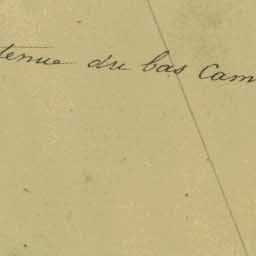 tenue du bas Cam